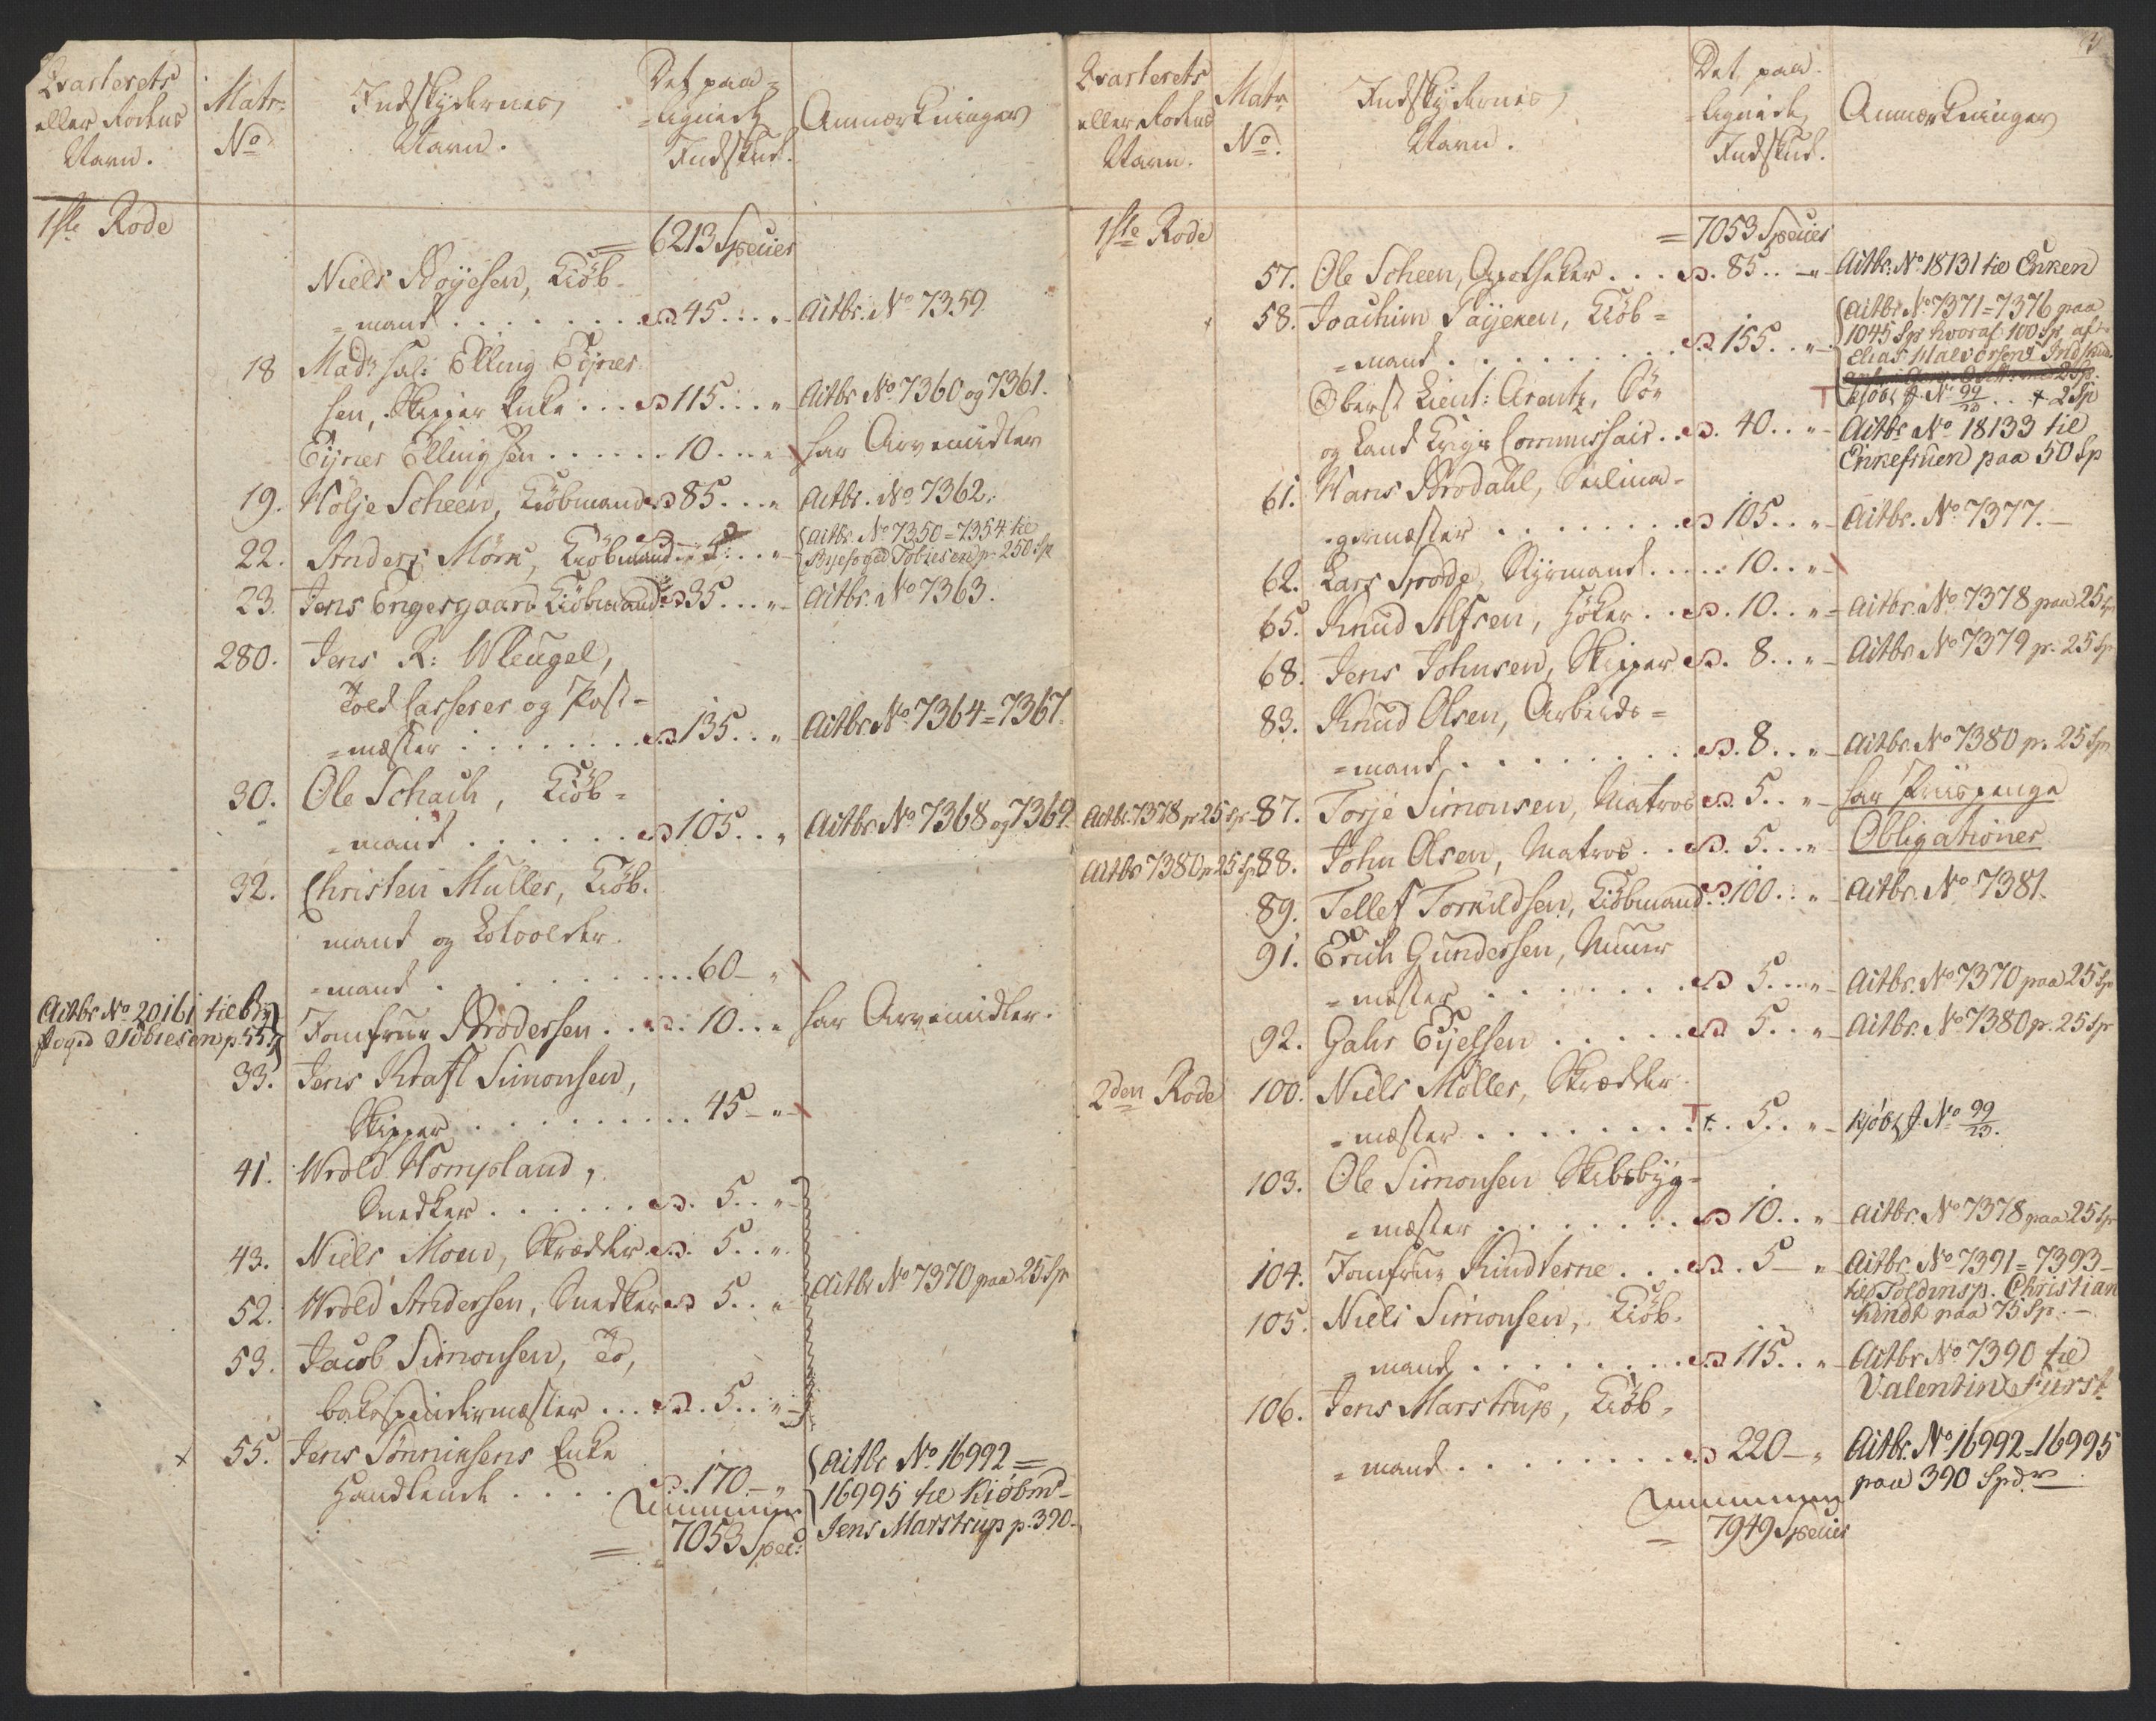 Qvarterets
eller Rodens
Navn.
Matr:
No
Indskydernes
Navn.
Det paa-
-lignede
Indskud.
Anmærkninger
1ste Rode
= 6213 Specier
Niels Boyesen, Kiöb-
=mand . . . . . . . 45 . . . "
Aitbr. No 7359
18 Mad: sal: Elling Eyner
sen, Skipper Enke . . . 115 . . . "
Aitbr No 7360 og 7361.
Eyner Elling sen . . . . . . 10 . . . "
har Arvemidler
19. Holje Scheen, Kiöbmand 85 . . . "
Aitbr. No 7362.
22. Anders Mörk, Kiöbmand 5 . . . "
Aitbr. No 7350=7354 til
Byefoged Tobiesen p. 250 Sp
23. Jens Engersgaard Kiöbmand 35 . . . "
Aitbr. No 7363.
280. Jens R: Wleugel,
Told Casserer og Post-
=mæster . . . . . . . 135 . . "
Aitbr No 7364=7367.
30. Ole Schach, Kiöb-
=mand . . . . . . 105 . . "
Aitbr No 7368 og 7369.
32. Christen Müller, Kiöb-
mand og
=mand . . . . . . . . 60 - "
Aitbr No 20161 til By
foged Tobiesen p. 55
Jomfrue Brodersen . . . 10 . . "
har Arvemidler.
33. Jens Kraft Simonsen,
Skipper . . . . . . . . . 45 - "
41. Wrold Hompland,
Snedker . . . . . . 5 . . "
43. Niels Moen, Skrædder 5 . . "
52. Wrold Andersen, Snedker 5 . . "
Aitbr No 7370 paa 25 Sp
53. Jacob Simonsen, To,
bakspindermæster . . . 5 . . "
55. Jens Sönnichsens Enke
Handlende . . . . 170 - "
Aitbr No 16992=
16995 til Kiöbmd
Jens Marstrup p. 390.
Summa
= 7053 Spec:
Qvarterets
eller Rodens
Navn.
Matr
No.
Indskydernes
Navn.
Det paa-
-lignede
Indskud.
Anmærkninger
1ste Rode
= 7053 Specier
57. Ole Scheen, Apotheker . . . 85 . . "
Aitbr. No 18131 til Enken
58. Joachim Payeken, Kiöb=
=mand . . . . . . . . . 155 . . "
Aitbr. No 7371=7376 paa
1045 Sp hvoraf 100 Sp af
Elias Halvorsens Indskud
kjöbt J. No 99/23 . . + 2 Sp
Oberst Lieut: Arentz, Sö-
og Land Krigs Commissair . . 40 . . "
Aitbr No 18133 til
Enkefruen paa 50 Sp
61. Hans Brodahl, Seilma-
germæster . . . . . . . 105 . . "
Aitbr. No 7377.
62. Lars Srode, Styrmand . . . . . 10 . . "
65. Knud Alfsen, Höker . . 10 . . "
Aitbr. No 7378 paa 25 Sp
68. Jens Johnsen, Skipper 8 . . "
Aitbr No 7379 p. 25 Sp
83. Knud Olsen, Arbeids=
=mand . . . . . . . . 8 . . "
Aitbr. No 7380 p. 25 Sp
Aitbr. 7378 p 25 Sp 87. Torje Simonsen, Matros 5 . . "
har Priispenge
Aitbr 7380 p 25 Sp 88. John Olsen, Matros . . 5 . . . "
Obligationer
89. Tellef Torkildsen, Kiöbmand 100 . . "
Aitbr. No 7381.
91. Erich Gundersen, Muur
=mester . . . . . . . 5 . . . "
Aitbr. No 7370 paa 25 Sp
92. Gahr Eyelsen . . . . . 5 . . "
Aitbr. No 7380 p. 25 Sp
2den Rode 100. Niels Möller, Skrædder-
=mæster . . . . . . . . + . 5 . . "
kjöbt J. No 99/23.
103. Ole Simonsen Skibsbyg-
=mæster . . . . . . . 10 . . "
Aitbr. No 7378 paa 25 Sp
104. Jomfrue Kindterne . . . 5 - "
Aitbr. No 7391=7393
til Toldinsp. Christian
Kindt paa 75 Sp.
105. Niels Simonsen, Kiöb-
=mand . . . . . . . 115 . . "
Aitbr No 7390 til
Valentin Fürst
106. Jens Marstrup, Kiöb-
=mand . . . . . . . . 220 - "
Aitbr. No 16992=16995
paa 390 Spdr
Summa
= 7949 Specier